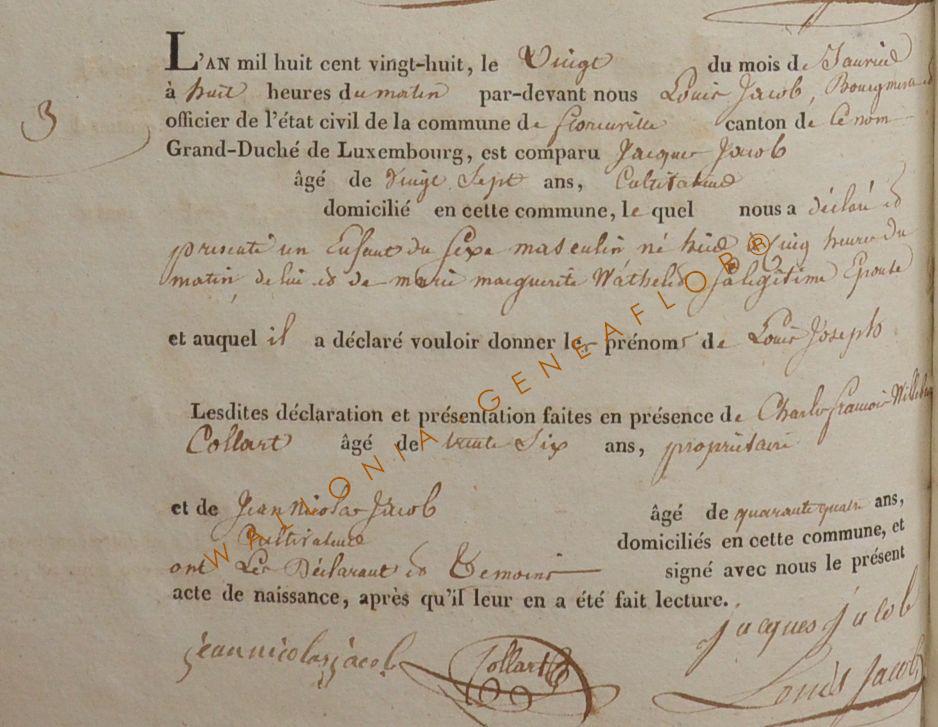 3
L'AN mil huit cent vingt-huit, le Vingt du mois de Janvier
à huit heures du matin par-devant nous Louis Jacob, Bourgmestre et
officier de l'état civil de la commune de florenville canton de Ce nom
Grand-Duché de Luxembourg, est comparu Jacques Jacob
âgé de Vingt Sept ans, Cultivateur
domicilié en cette commune, le quel nous a déclaré et
presenté un Enfant du Sexe masculin né hier à Cinq heures du
matin, de lui et de marie marguerite Wathelet Sa legitime Epouse
et auquel il a déclaré vouloir donner les prénoms de Louis Joseph
Lesdites déclaration et présentation faites en présence de Charles francois
Collart âgé de trente Six ans, propriétaire
et de Jean Nicolas Jacob âgé de quarante quatre ans,
Cultivateur domiciliés en cette commune, et
ont Les Déclarant et temoins signé avec nous le présent
acte de naissance, après qu'il leur en a été fait lecture.
jean nicolas jacob Collart jacques jacob
Louis Jacob
WALLONIA GENEAFLOB®